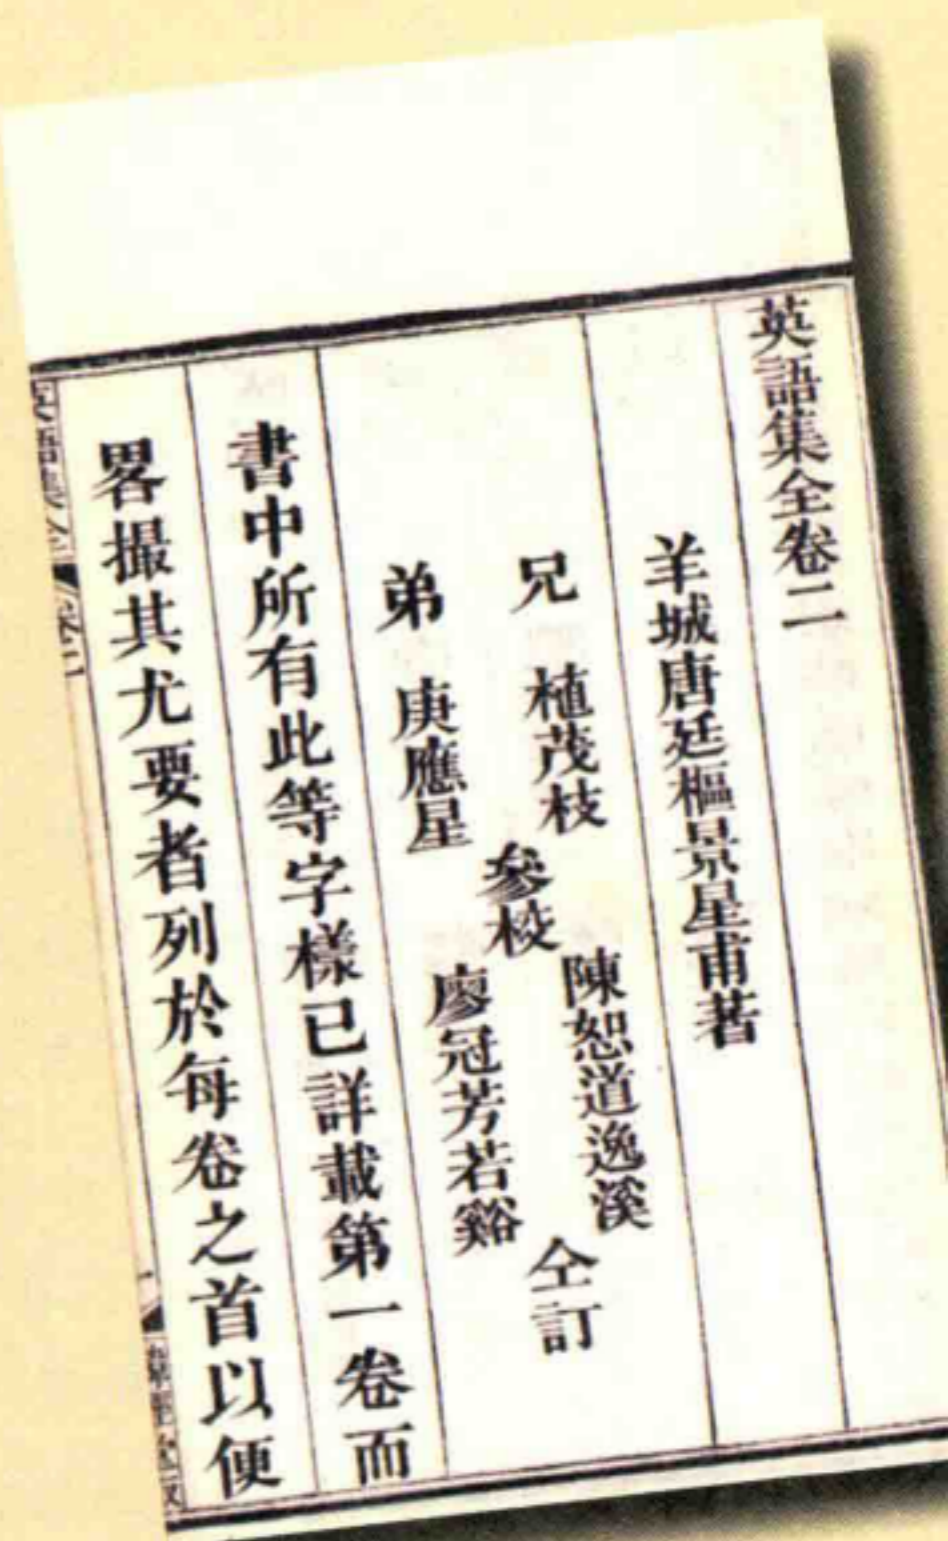 英語集全卷二
羊城唐廷樞景星甫著
兄 植茂枝
弟 庚應星
參校
陳恕道逸溪
廖冠芳若谿
仝訂
書中所有此等字樣已詳載第一卷而
畧撮其尤要者列於每卷之首以便
英語集全 卷二